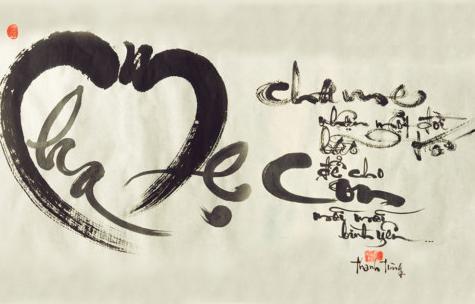 Cha Mẹ
cha mẹ
nhận một đời
bão
để cho
Con
mãi mãi
bình yên...
thanh tùng